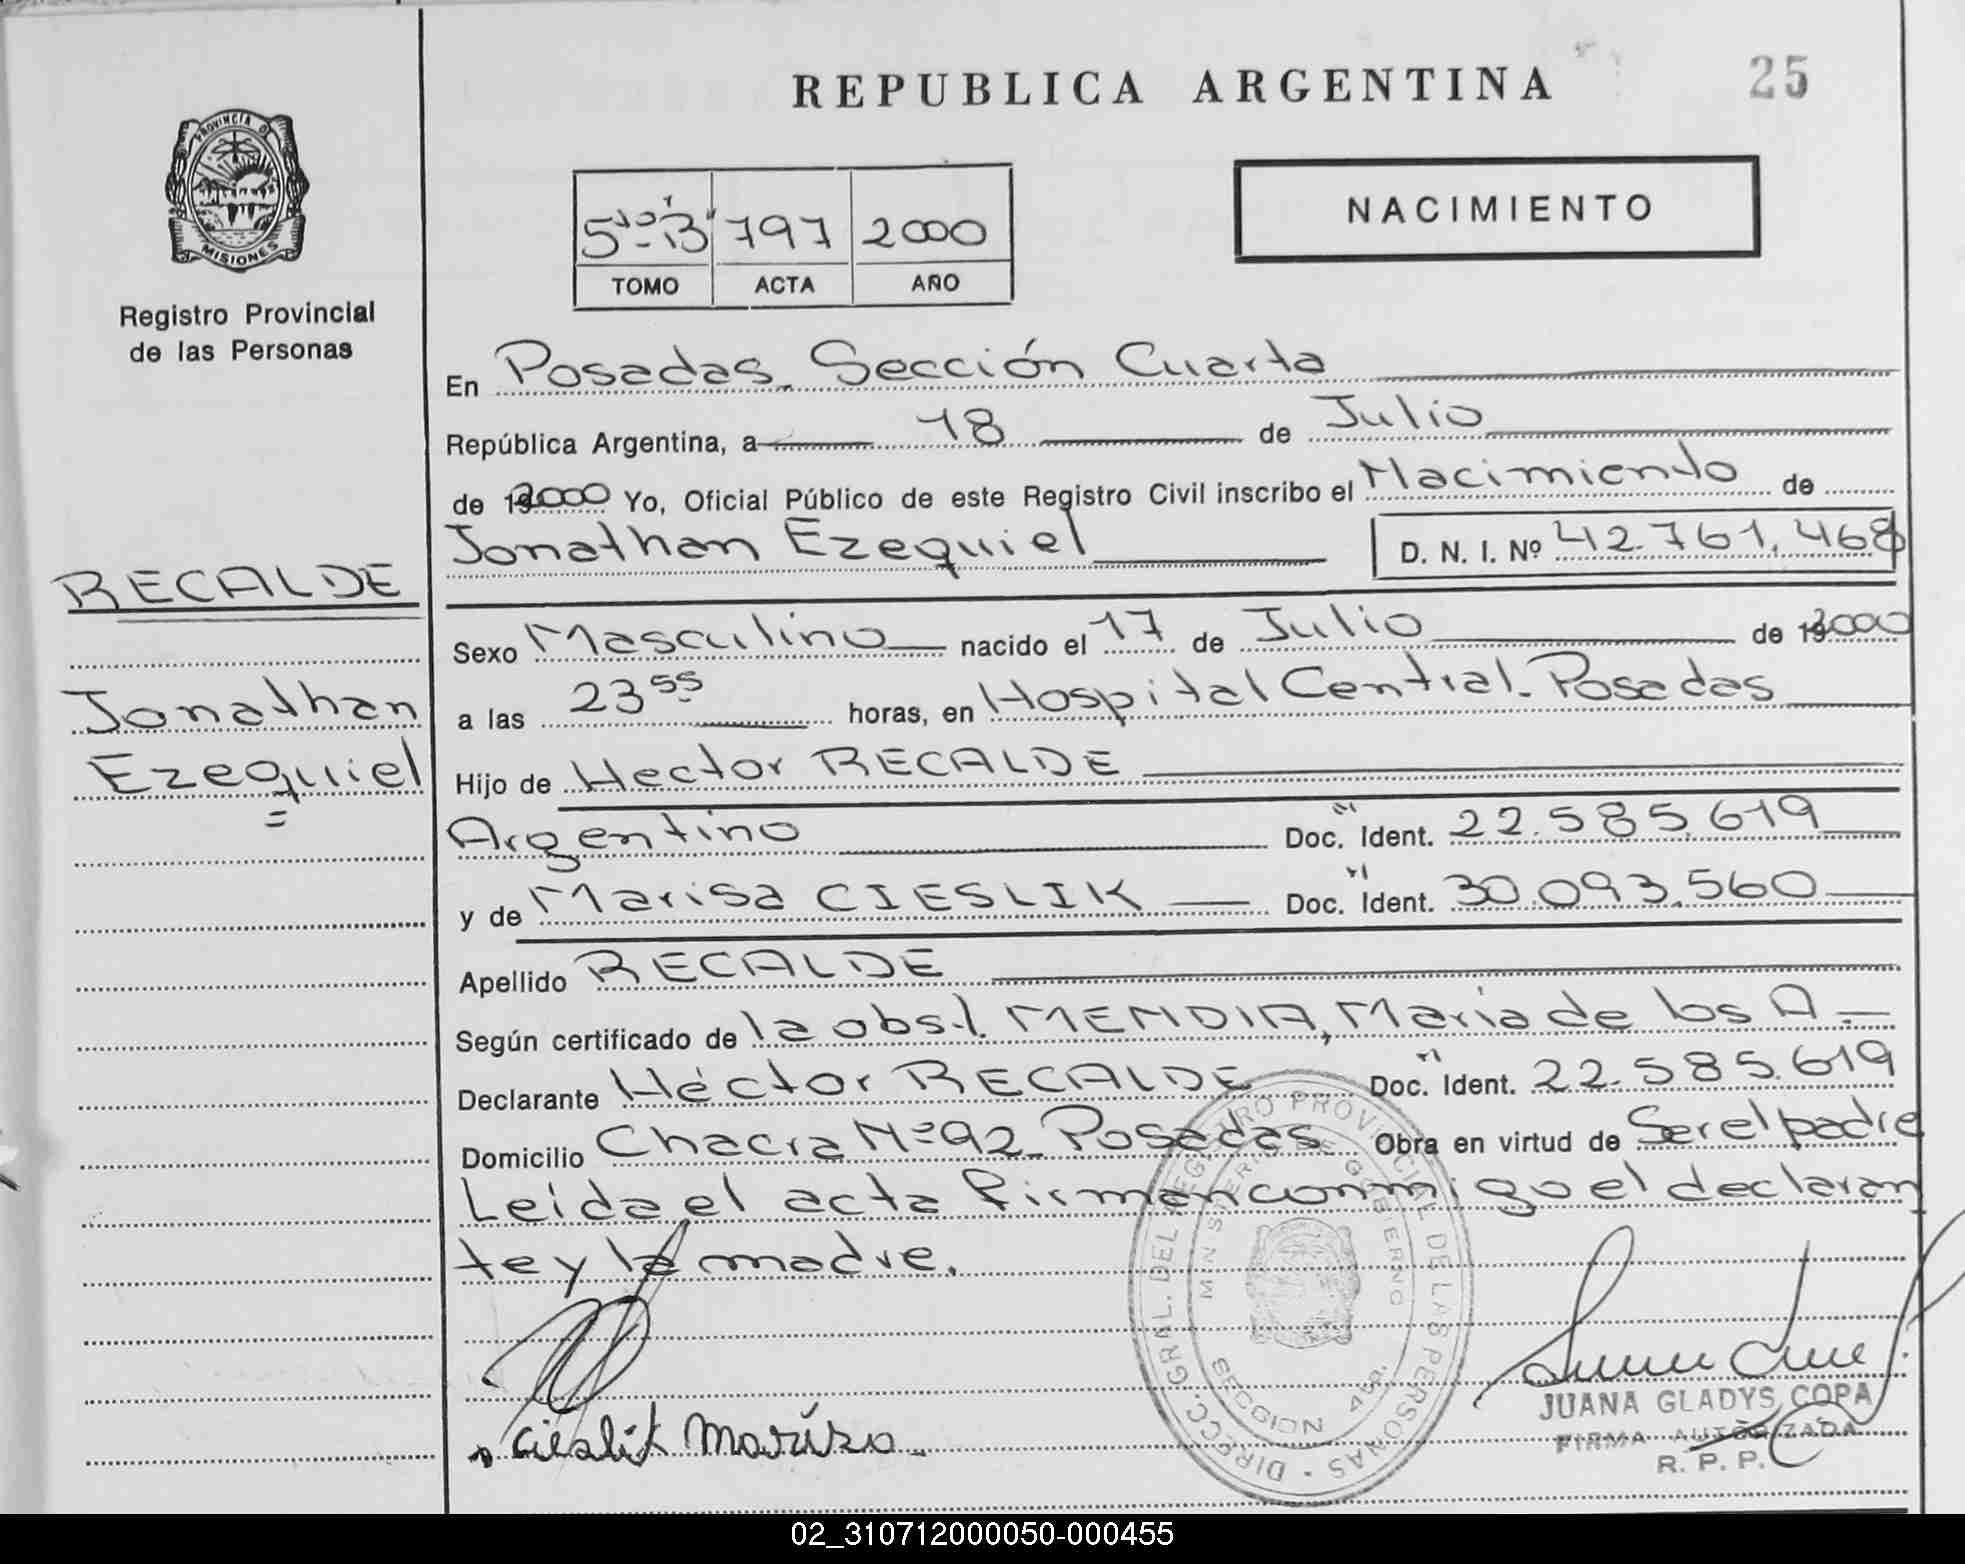 REPUBLICA ARGENTINA
25
PROVINCIA DE
MISIONES
Registro Provincial
de las Personas
5to "B" 797 2000
TOMO ACTA AÑO
NACIMIENTO
En Posadas. Sección Cuarta
República Argentina, a 18 de Julio
de 2000 Yo, Oficial Público de este Registro Civil inscribo el Nacimiento de
Jonathan Ezequiel D. N. I. Nº 42.761.468
RECALDE
Jonathan
Ezequiel
Sexo Masculino nacido el 17 de Julio de 2000
a las 23 55 horas, en Hospital Central. Posadas
Hijo de Hector RECALDE
Argentino Doc. Ident. 22.585.619
y de Marisa CIESLIK Doc. Ident. 30.093.560
Apellido RECALDE
Según certificado de la obst. MENDIA, Maria de los A.
Declarante Héctor RECALDE Doc. Ident. 22.585.619
Domicilio Chacra Nº 92. Posadas Obra en virtud de Ser el padre
Leída el acta firman conmigo el declaran
te y la madre.
DIRECC. GRAL. DEL REGISTRO PROVINCIAL DE LAS PERSONAS
MINISTERIO DE GOBIERNO
SECCION 4ta.
Cieslik Mariza
JUANA GLADYS COPA
FIRMA AUTORIZADA
R. P. P.
02_310712000050-000455